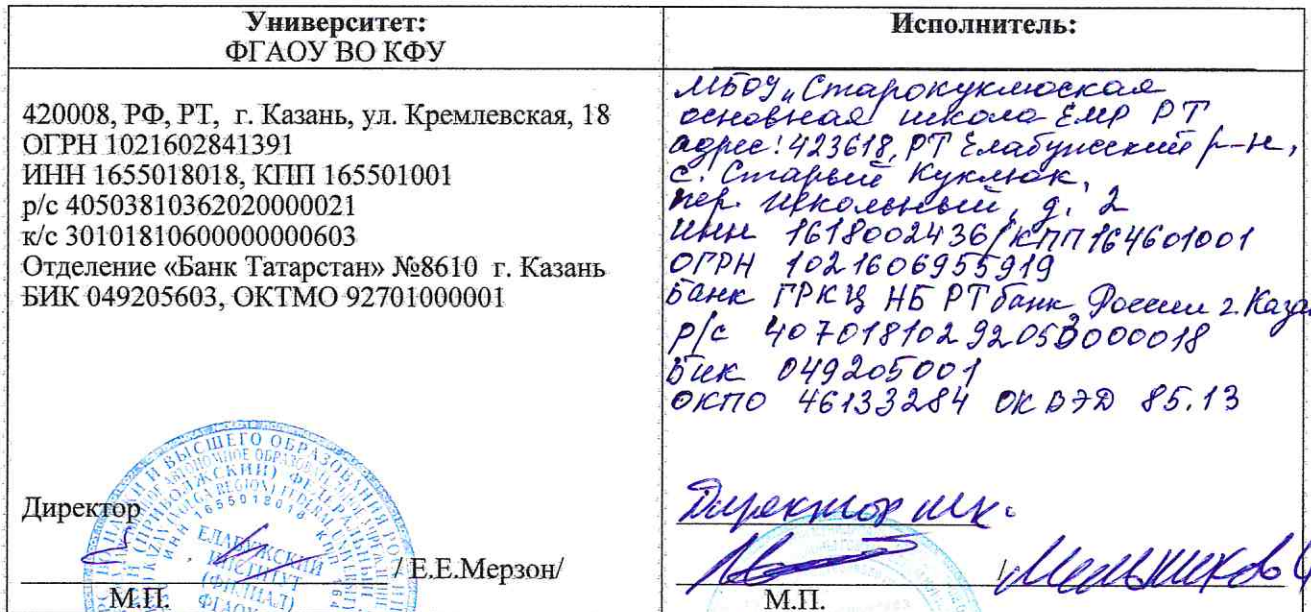 Университет:
ФГАОУ ВО КФУ
420008, РФ, РТ, г. Казань, ул. Кремлевская, 18
ОГРН 1021602841391
ИНН 1655018018, КПП 165501001
р/с 40503810362020000021
к/с 30101810600000000603
Отделение «Банк Татарстан» №8610 г. Казань
БИК 049205603, ОКТМО 92701000001
Директор
/ Е.Е.Мерзон/
М.П.
ЕЛАБУЖСКИЙ
ИНСТИТУТ
(ФИЛИАЛ)
Исполнитель:
МБОУ „Старокуклюская
основная школа ЕМР РТ
адрес: 423618, РТ Елабужский р-н,
с. Старый Куклюк,
пер. Школьный, д. 2
ИНН 1618002436/КПП164601001
ОГРН 1021606955919
Банк ГРКЦ НБ РТ банк России г. Каза
р/с 40701810292053000018
Бик 049205001
ОКПО 46133284 ОКВЭД 85.13
Директор шк.
М.П.